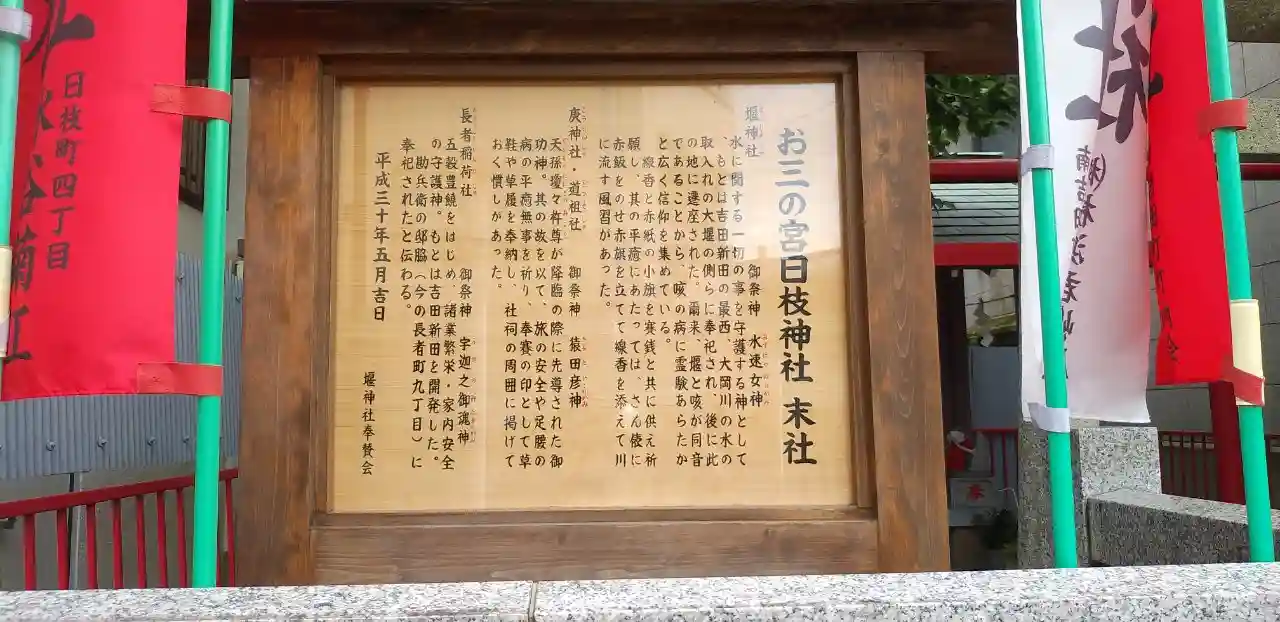 お三の宮日枝神社 末社
堰神社
御祭神 水速女神
水に関する一切の事を守護する神として
、もとは吉田新田の最西、大岡川の水の
取入れの大堰の側らに奉祀され、後に此
の地に遷座された。爾来、堰と咳が同音
であることから、咳の病に霊験あらたか
と広く信仰を集めている。
線香と赤紙の小旗を賽銭と共に供え祈
願し、其の平癒にあたっては、さん俵に
赤飯をのせ赤旗を立てて線香を添えて川
に流す風習があった。
庚神社・道祖社 御祭神 猿田彦神
天孫瓊々杵尊が降臨の際に先導された御
功神。其の故を以て、旅の安全や足腰の
病の平癒無事を祈り、奉賽の印として草
鞋や草履を奉納し、社祠の周囲に掲げて
おく慣しがあった。
長者稲荷社 御祭神 宇迦之御魂神
五穀豊饒をはじめ、諸業繁栄・家内安全
の守護神。もとは吉田新田を開発した。
勘兵衛の邸脇（今の長者町九丁目）に
奉祀されたと伝わる。
平成三十年五月吉日
堰神社奉賛会
日枝町四丁目